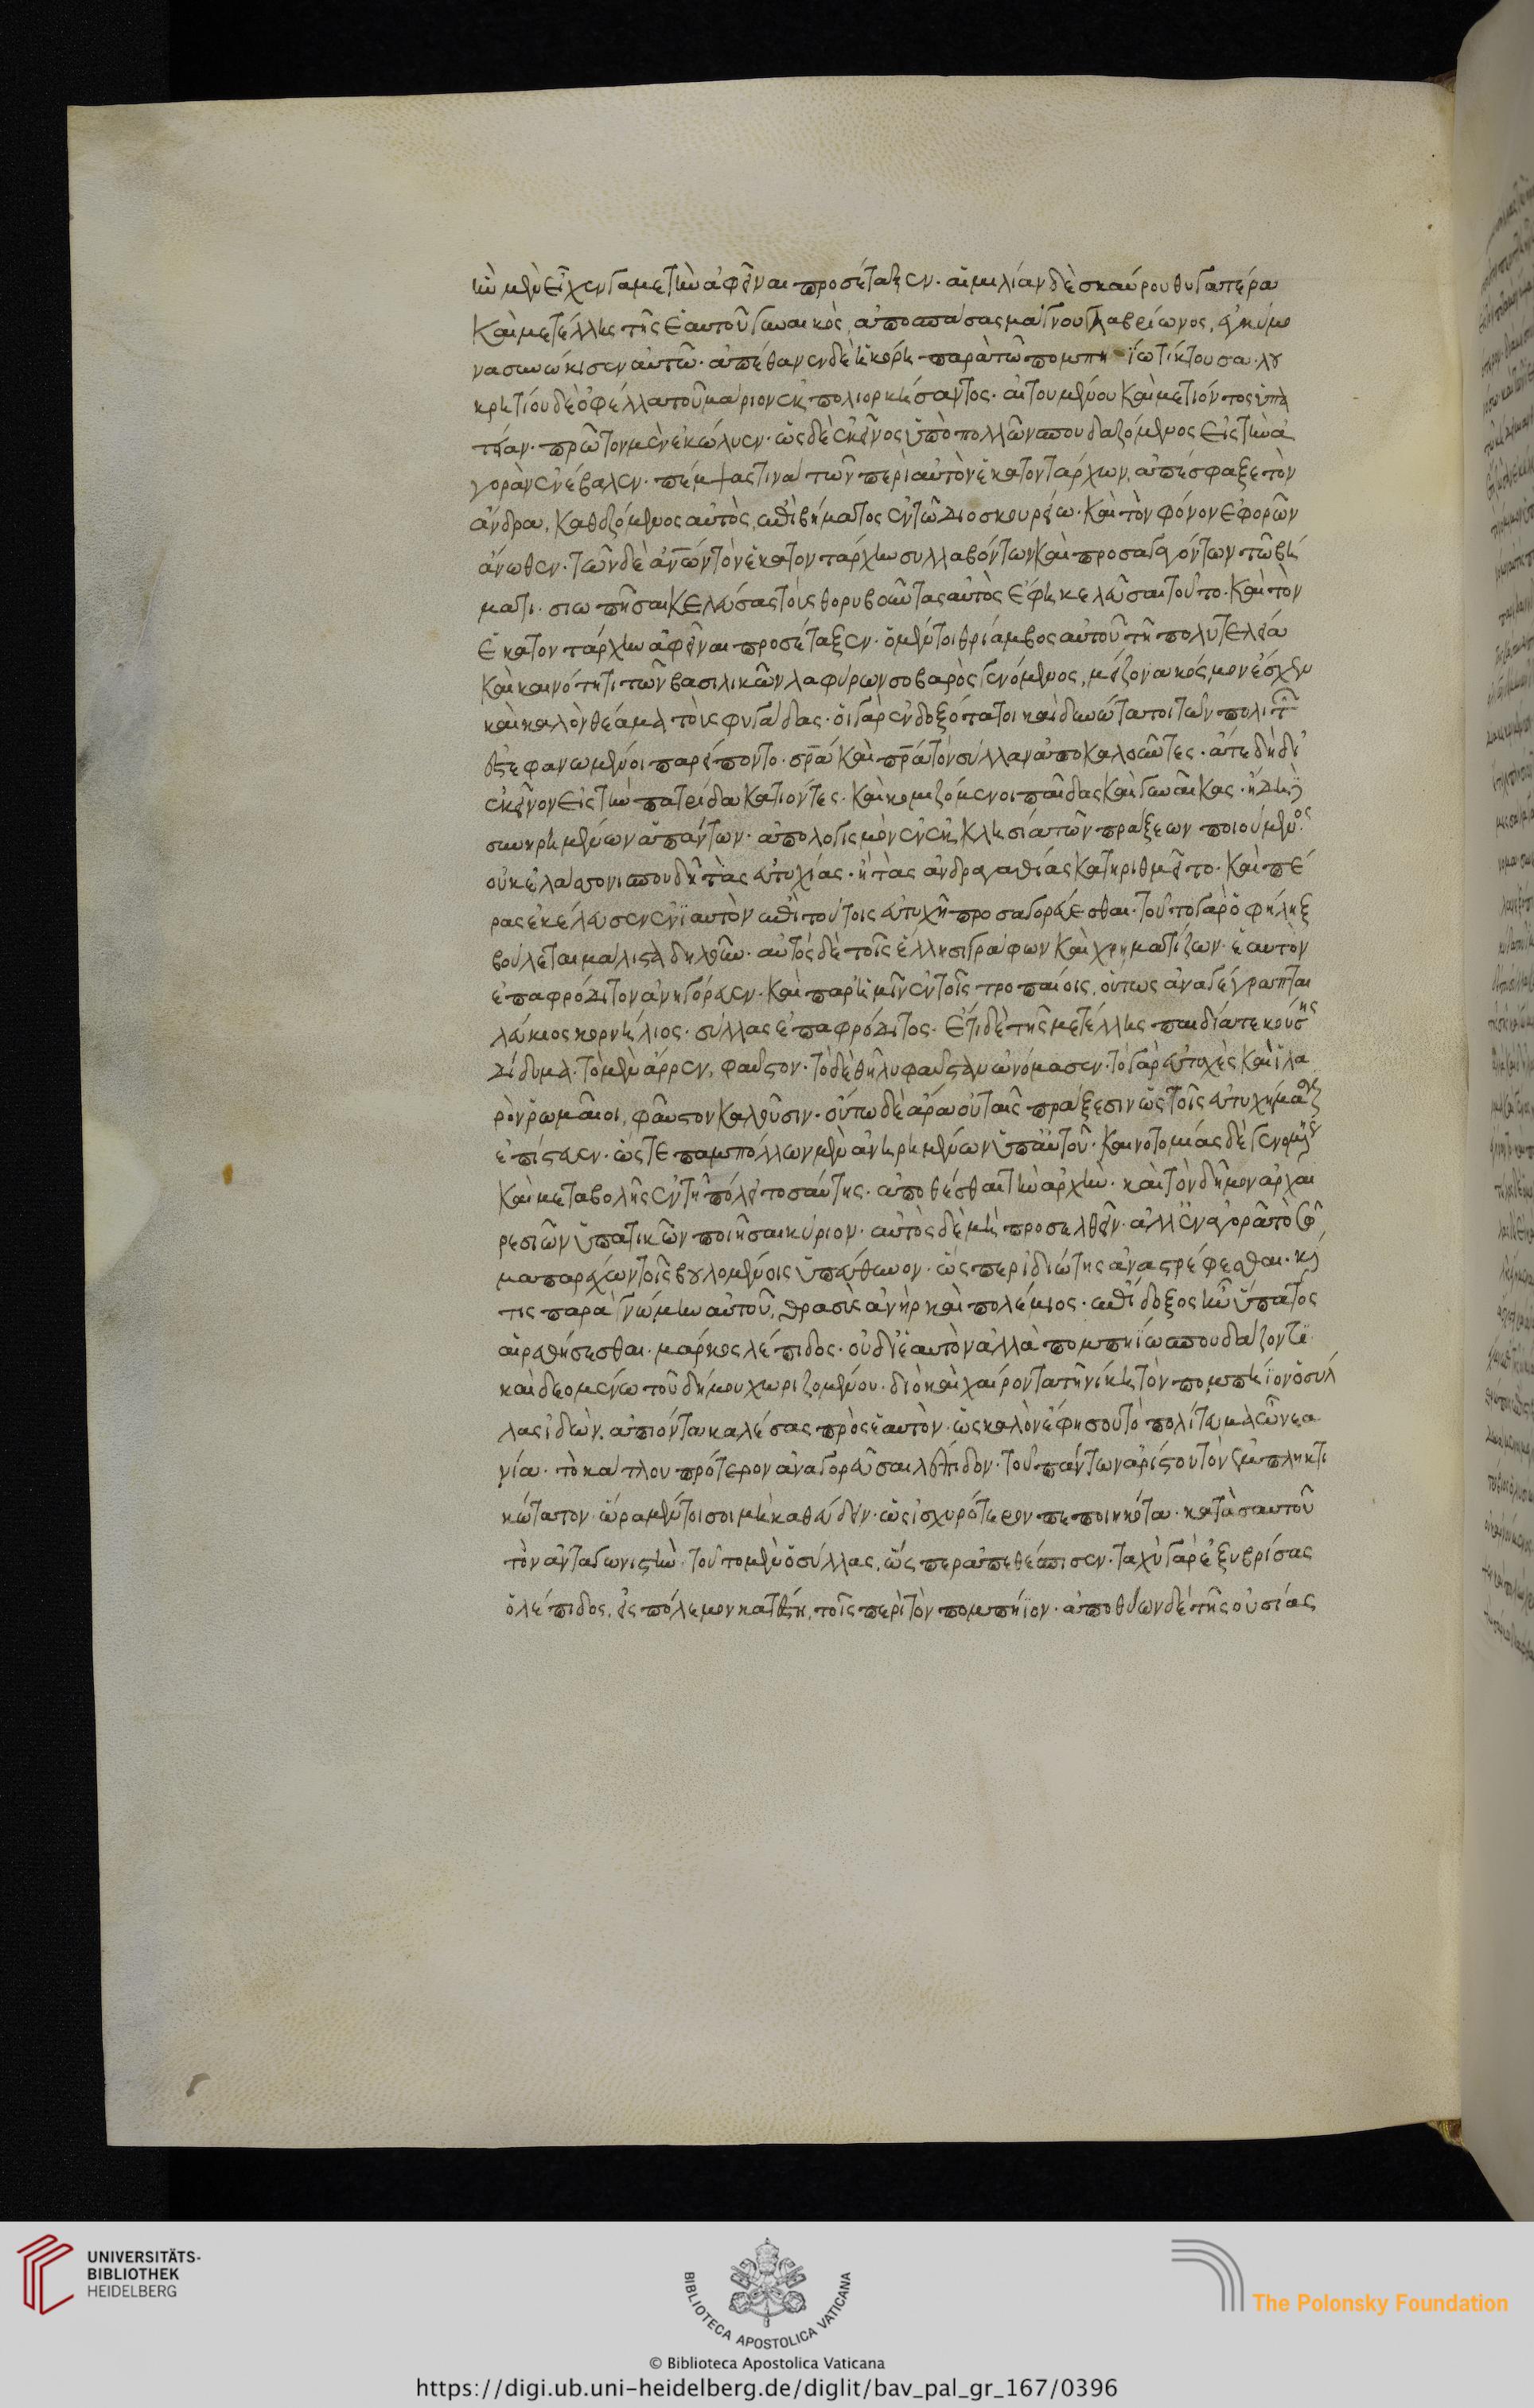 ἣν μὲν εἶχεν γαμετὴν ἀφεῖναι προσέταξεν. αἰμιλίαν δὲ σκαύρου θυγατέρα
καὶ μετέλλης τῆς ἑαυτοῦ γυναικός, ἀποσπάσας μάγνου γλαβρίωνος, ἐγκύμο
να συνώκισεν αὐτῶ. ἀπέθανεν δὲ ἡ κόρη παρὰ τῶ πομπηίω τίκτουσα. λου
κρητίου δὲ ὀφέλλα τοῦ μάριον ἐκπολιορκήσαντος. αἰτουμένου καὶ μετιόντος ὑπα
τείαν. πρῶτον μὲν ἐκώλυεν. ὡς δὲ ἐκεῖνος ὑπὸ πολλῶν σπουδαζόμενος εἰς τὴν ἀ
γορὰν ἐνέβαλεν. πέμψας τινὰ τῶν περὶ αὐτὸν ἑκατοντάρχων, ἀπέσφαξε τὸν
ἄνδρα, καθεζόμενος αὐτὸς, ἐπὶ βήματος ἐν τῶ διοσκουρείω. καὶ τὸν φόνον ἐφορῶν
ἄνωθεν. τῶν δὲ ἀνῶν τὸν ἑκατοντάρχην συλλαβόντων καὶ προσαγαγόντων τῶ βή
ματι. σιωπῆσαι κελεύσας τοὺς θορυβοῦντας αὐτὸς ἔφη κελεῦσαι τοῦτο. καὶ τὸν
ἑκατοντάρχην ἀφεῖναι προσέταξεν. ὁ μέντοι θρίαμβος αὐτοῦ τῆ πολυτελεία
καὶ καινότητι τῶν βασιλικῶν λαφύρων σοβαρὸς γενόμενος, μείζονα κόσμον ἔσχεν
καὶ καλὸν θέαμα τοὺς φυγάδας. οἱ γὰρ ἐνδοξότατοι καὶ δυνώτατοι τῶν πολιτῶν
ἐστεφανωμένοι παρείποντο. σρα καὶ πρα τὸν σύλλαν ἀποκαλοῦντες. ἅτε δὴ δι'
ἐκεῖνον εἰς τὴν πατρίδα κατιόντες. καὶ κομιζόμενοι παῖδας καὶ γυναῖκας. ἤδη δὲ
συνηρημένων ἁπάντων. ἀπολογισμὸν ἐν ἐκκλησία τῶν πράξεων ποιούμενος
οὐκ ἐλάσσονι σπουδῆ τὰς εὐτυχίας. ἢ τὰς ἀνδραγαθίας κατηριθμεῖτο. καὶ πέ
ρας ἐκέλευσεν ἑαυτὸν ἐπὶ τούτοις εὐτυχῆ προσαγορεύεσθαι. τοῦτο γὰρ ὁ φήλιξ
βούλεται μάλιστα δηλοῦν. αὐτὸς δὲ τοῖς ἕλλησι γράφων καὶ χρηματίζων. ἑαυτὸν
ἐπαφρόδιτον ἀνηγόρευεν. καὶ παρ' ἡμῖν ἐν τοῖς τροπαίοις, οὕτως ἀναγέγραπται
λεύκιος κορνήλιος. σύλλας ἐπαφρόδιτος. ἔτι δὲ τῆς μετέλλης παιδία τεκούσης
δίδυμα. τὸ μὲν ἄρρεν, φαῦστον. τὸ δὲ θῆλυ φαῦσταν ὠνόμασεν. τὸ γὰρ εὐτυχὲς καὶ ἱλα
ρὸν ῥωμαῖοι, φαῦστον καλοῦσιν. οὕτω δὲ ἄρα οὐ ταῖς πράξεσιν ὡς τοῖς εὐτυχήμασιν
ἐπίστευεν. ὥστε παμπόλλων μὲν ἀνηρημένων ὑπ' αὐτοῦ. καινοτομίας δὲ γενομένης
καὶ μεταβολῆς ἐν τῆ πόλει τοσαύτης. ἀποθέσθαι τὴν ἀρχὴν. καὶ τὸν δῆμον ἀρχαι
ρεσιῶν ὑπατικῶν ποιῆσαι κύριον. αὐτὸς δὲ μὴ προσελθεῖν. ἀλλ' ἐν ἀγορᾶ τὸ σῶ
μα παρέχων τοῖς βουλομένοις ὑπεύθυνον. ὥσπερ ἰδιώτης ἀναστρέφεσθαι. καί
τις παρὰ γνώμην αὐτοῦ, θρασὺς ἀνὴρ καὶ πολέμιος. ἐπίδοξος ἦν ὕπατος
αἱρεθήσεσθαι. μάρκος λέπιδος. οὐ δι' ἑαυτὸν ἀλλὰ πομπηίω σπουδάζοντι
καὶ δεομένω τοῦ δήμου χωριζομένου. διὸ καὶ χαίροντα τῆ νίκη τὸν πομπήιον ὁ σύλ
λας ἰδὼν, ἀπιόντα καλέσας πρὸς ἑαυτὸν. ὡς καλὸν ἔφη σου τὸ πολίτευμα ὦ νεα
νία. τὸ κάτλου πρότερον ἀναγορεῦσαι λέπιδον. τοῦ πάντων ἀρίστου τὸν ἐμπληκτι
κώτατον. ὥρα μέντοι σοι μὴ καθεύδειν. ὡς ἰσχυρότερον πεποιηκότα. κατὰ σαυτοῦ
τὸν ἀνταγωνιστὴν. τοῦτο μὲν ὁ σύλλας, ὥσπερ ἀπεθέσπισεν. ταχὺ γὰρ ἐξυβρίσας
ὁ λέπιδος, εἰς πόλεμον κατέστη, τοῖς περὶ τὸν πομπήϊον. ἀποθύων δὲ τῆς οὐσίας
UNIVERSITÄTS-
BIBLIOTHEK
HEIDELBERG
BIBLIOTECA APOSTOLICA VATICANA
The Polonsky Foundation
© Biblioteca Apostolica Vaticana
https://digi.ub.uni-heidelberg.de/diglit/bav_pal_gr_167/0396